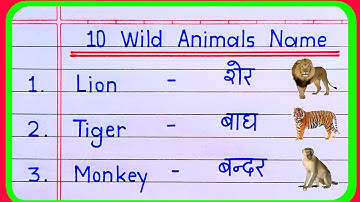 10 Wild Animals Name
1. Lion - शेर
2. Tiger - बाघ
3. Monkey - बन्दर